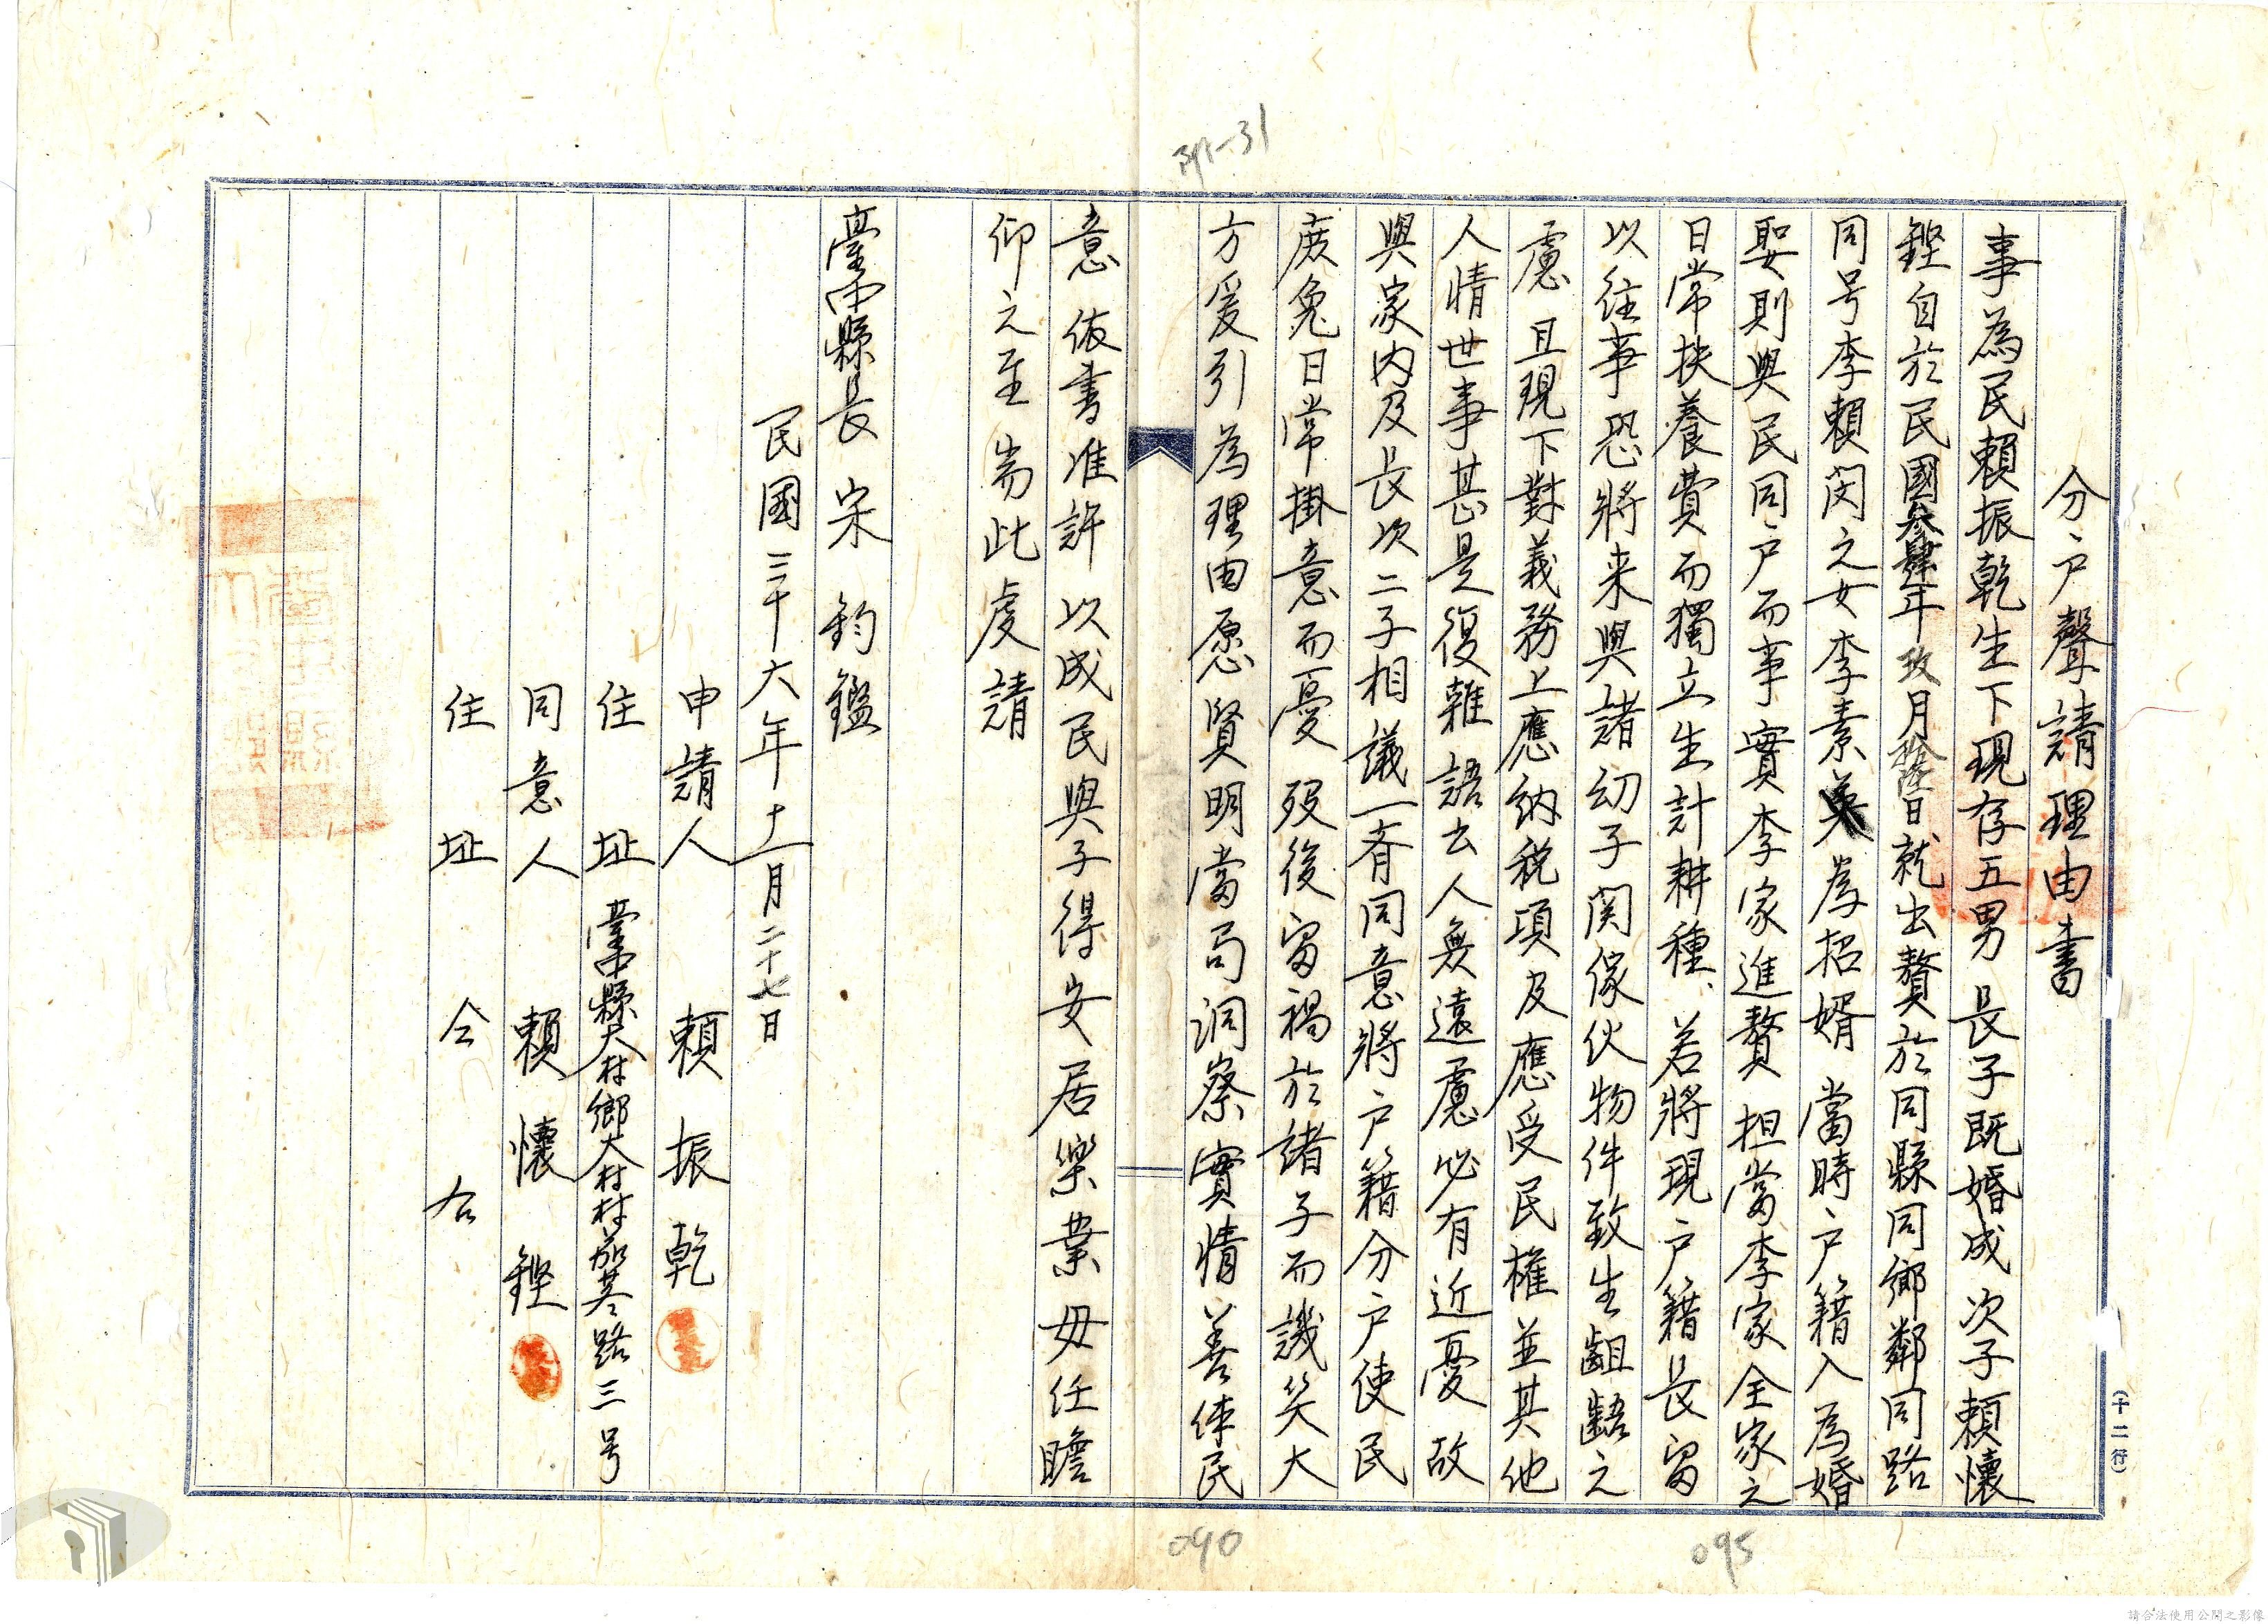 分戶聲請理由書
事為民賴振乾生下現存五男長子既婚成次子賴懷
鏗自於民國參肆年玖月拾陸日就出贅於同縣同鄉鄰同路
同号李賴閃之女李素為招婿當時戶籍入為婚
娶則與民同戶而事實李家進贅担當李家全家之
日常扶養費而獨立生計耕種、若將現戶籍長留
以往事恐將来與諸幼子関係伙物件致生齟齬之
慮且現下對義務上應納税項及應受民權並其他
人情世事甚是復雜語云人無遠慮必有近憂故
與家內及長次二子相議一斉同意將戶籍分戶使民
庶免日常掛意而憂歿後留禍於諸子而譏笑大
方爰引為理由愿賢明當局洞察實情善体民
意依書准許以成民與子得安居樂業毋任瞻
仰之至耑此虔請
臺中縣長宋鈞鑑
民國三十六年十一月二十七日
申請人 賴振乾
住址 臺中縣大村鄉大村村茄苳路三号
同意人 賴懷鏗
住址 仝右
（十二行）
31
090
095
請合法使用公開之影像